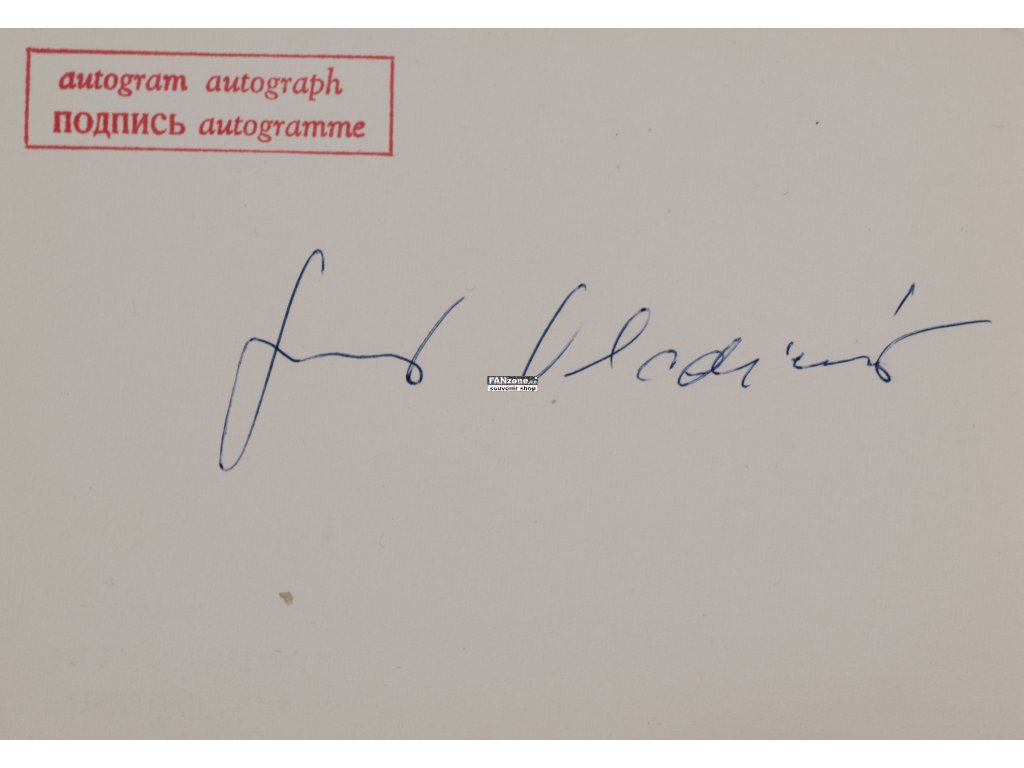 autogram autograph
ПОДПИСЬ autogramme
Vladimír
FANzone.cz
souvenir shop